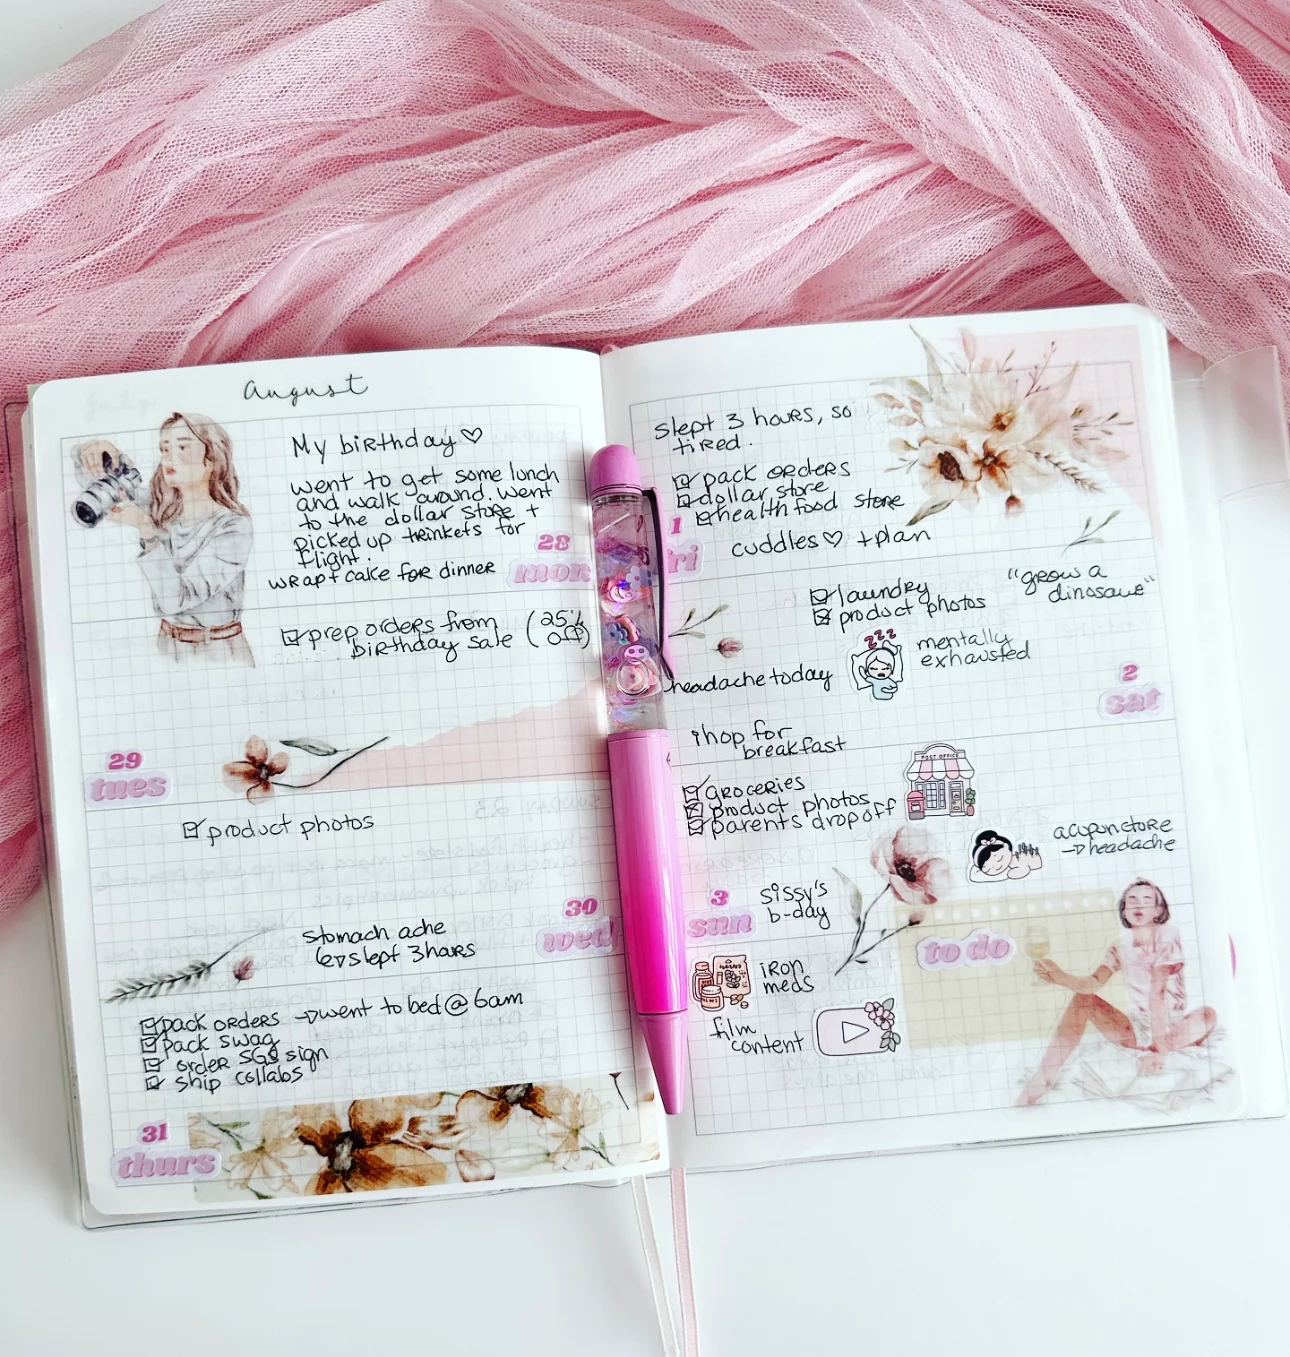 August
My birthday♡
went to get some lunch
and walk around. Went
to the dollar store +
picked up trinkets for
flight.
wrap + cake for dinner
28
mon
☑ prep orders from
birthday sale (25%
off)
29
tues
☑ product photos
30
wed
stomach ache
↳ slept 3 hours
☑ pack orders → went to bed @ 6am
☑ pack swag
☑ order SGS sign
☑ ship collabs
31
thurs
slept 3 hours, so
tired.
☑ pack orders
☑ dollar store
☑ health food store
cuddles♡ + plan
1
fri
☑ laundry
☑ product photos
"grow a
dinosaur"
zzz
mentally
exhausted
headache today
2
sat
ihop for
breakfast
POST OFFICE
☑ groceries
☑ product photos
☑ parents drop off
acupuncture
→ headache
3
sun
sissy's
b-day
to do
iron
meds
film
content